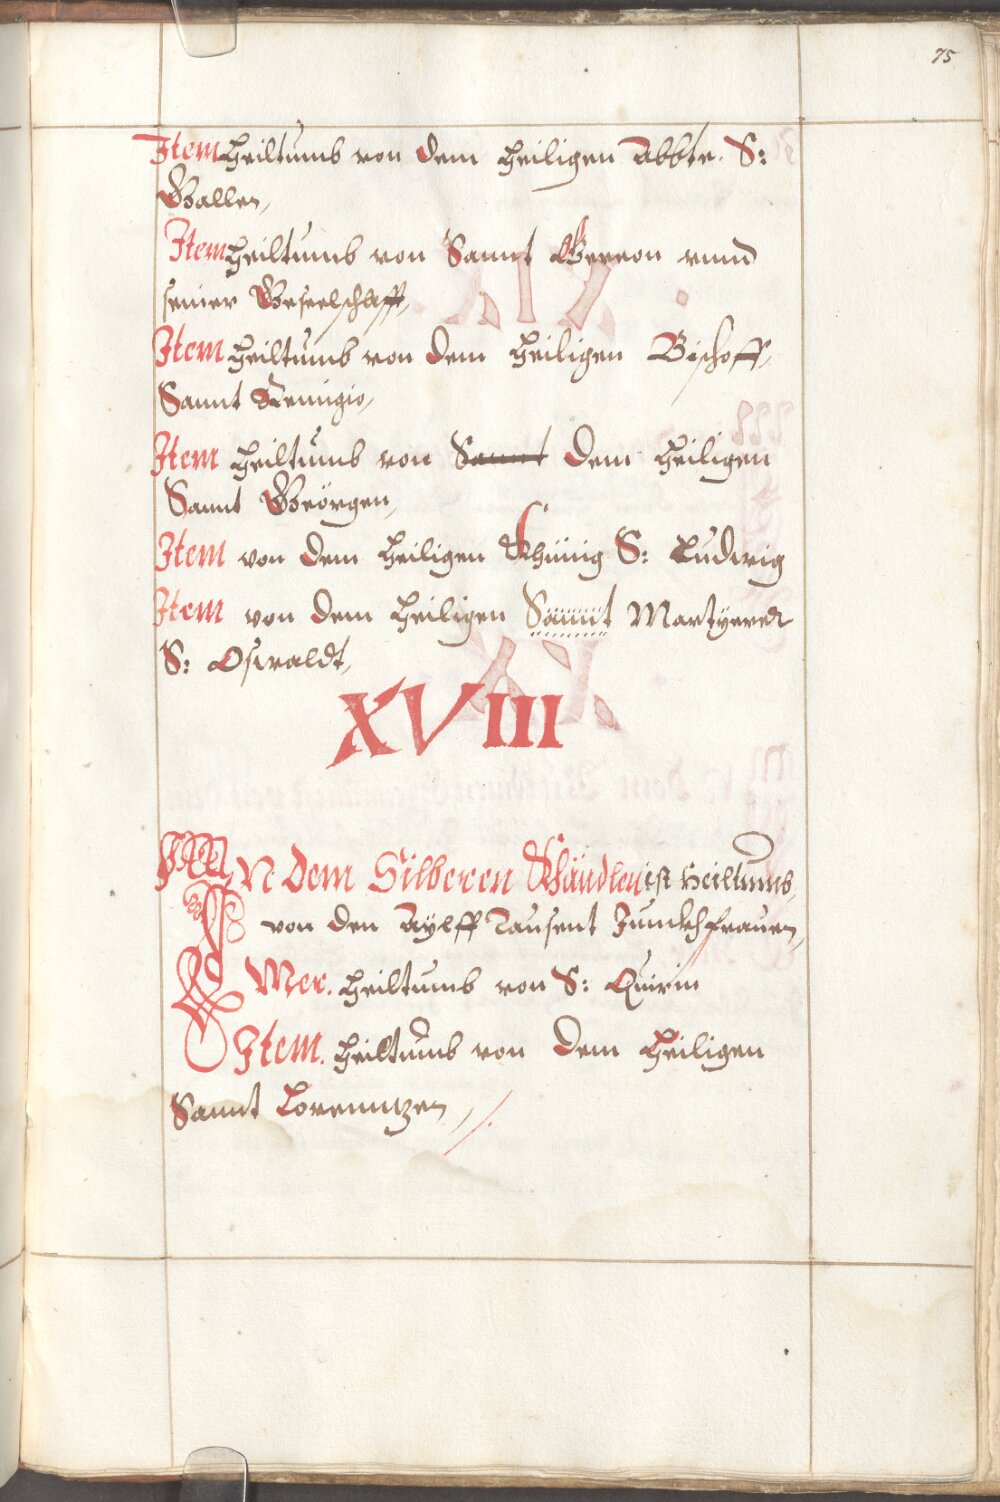 75
Item heiltumb von dem heiligen Abbte. S:
Gallen,
Item heiltumb von Sannt Gereon vnnd
seiner Geseelschafft,
Item heiltumb von dem heiligen Bischoff,
Sannt Remigio,
Item heiltumb von Sannt dem heiligen
Sannt Geörgen,
Item von dem heiligen Khünig S: Ludwig
Item von dem heiligen Sannt Martyerer
S: Oswaldt,
XVIII
IN Dem Silberen Khändlen ist heiltumb,
von den Aylff Tausent Junckhfrauen,
Mer. heiltumb von S: Quirin
Item. heiltumb von dem heiligen
Sannt Lorenntzen,